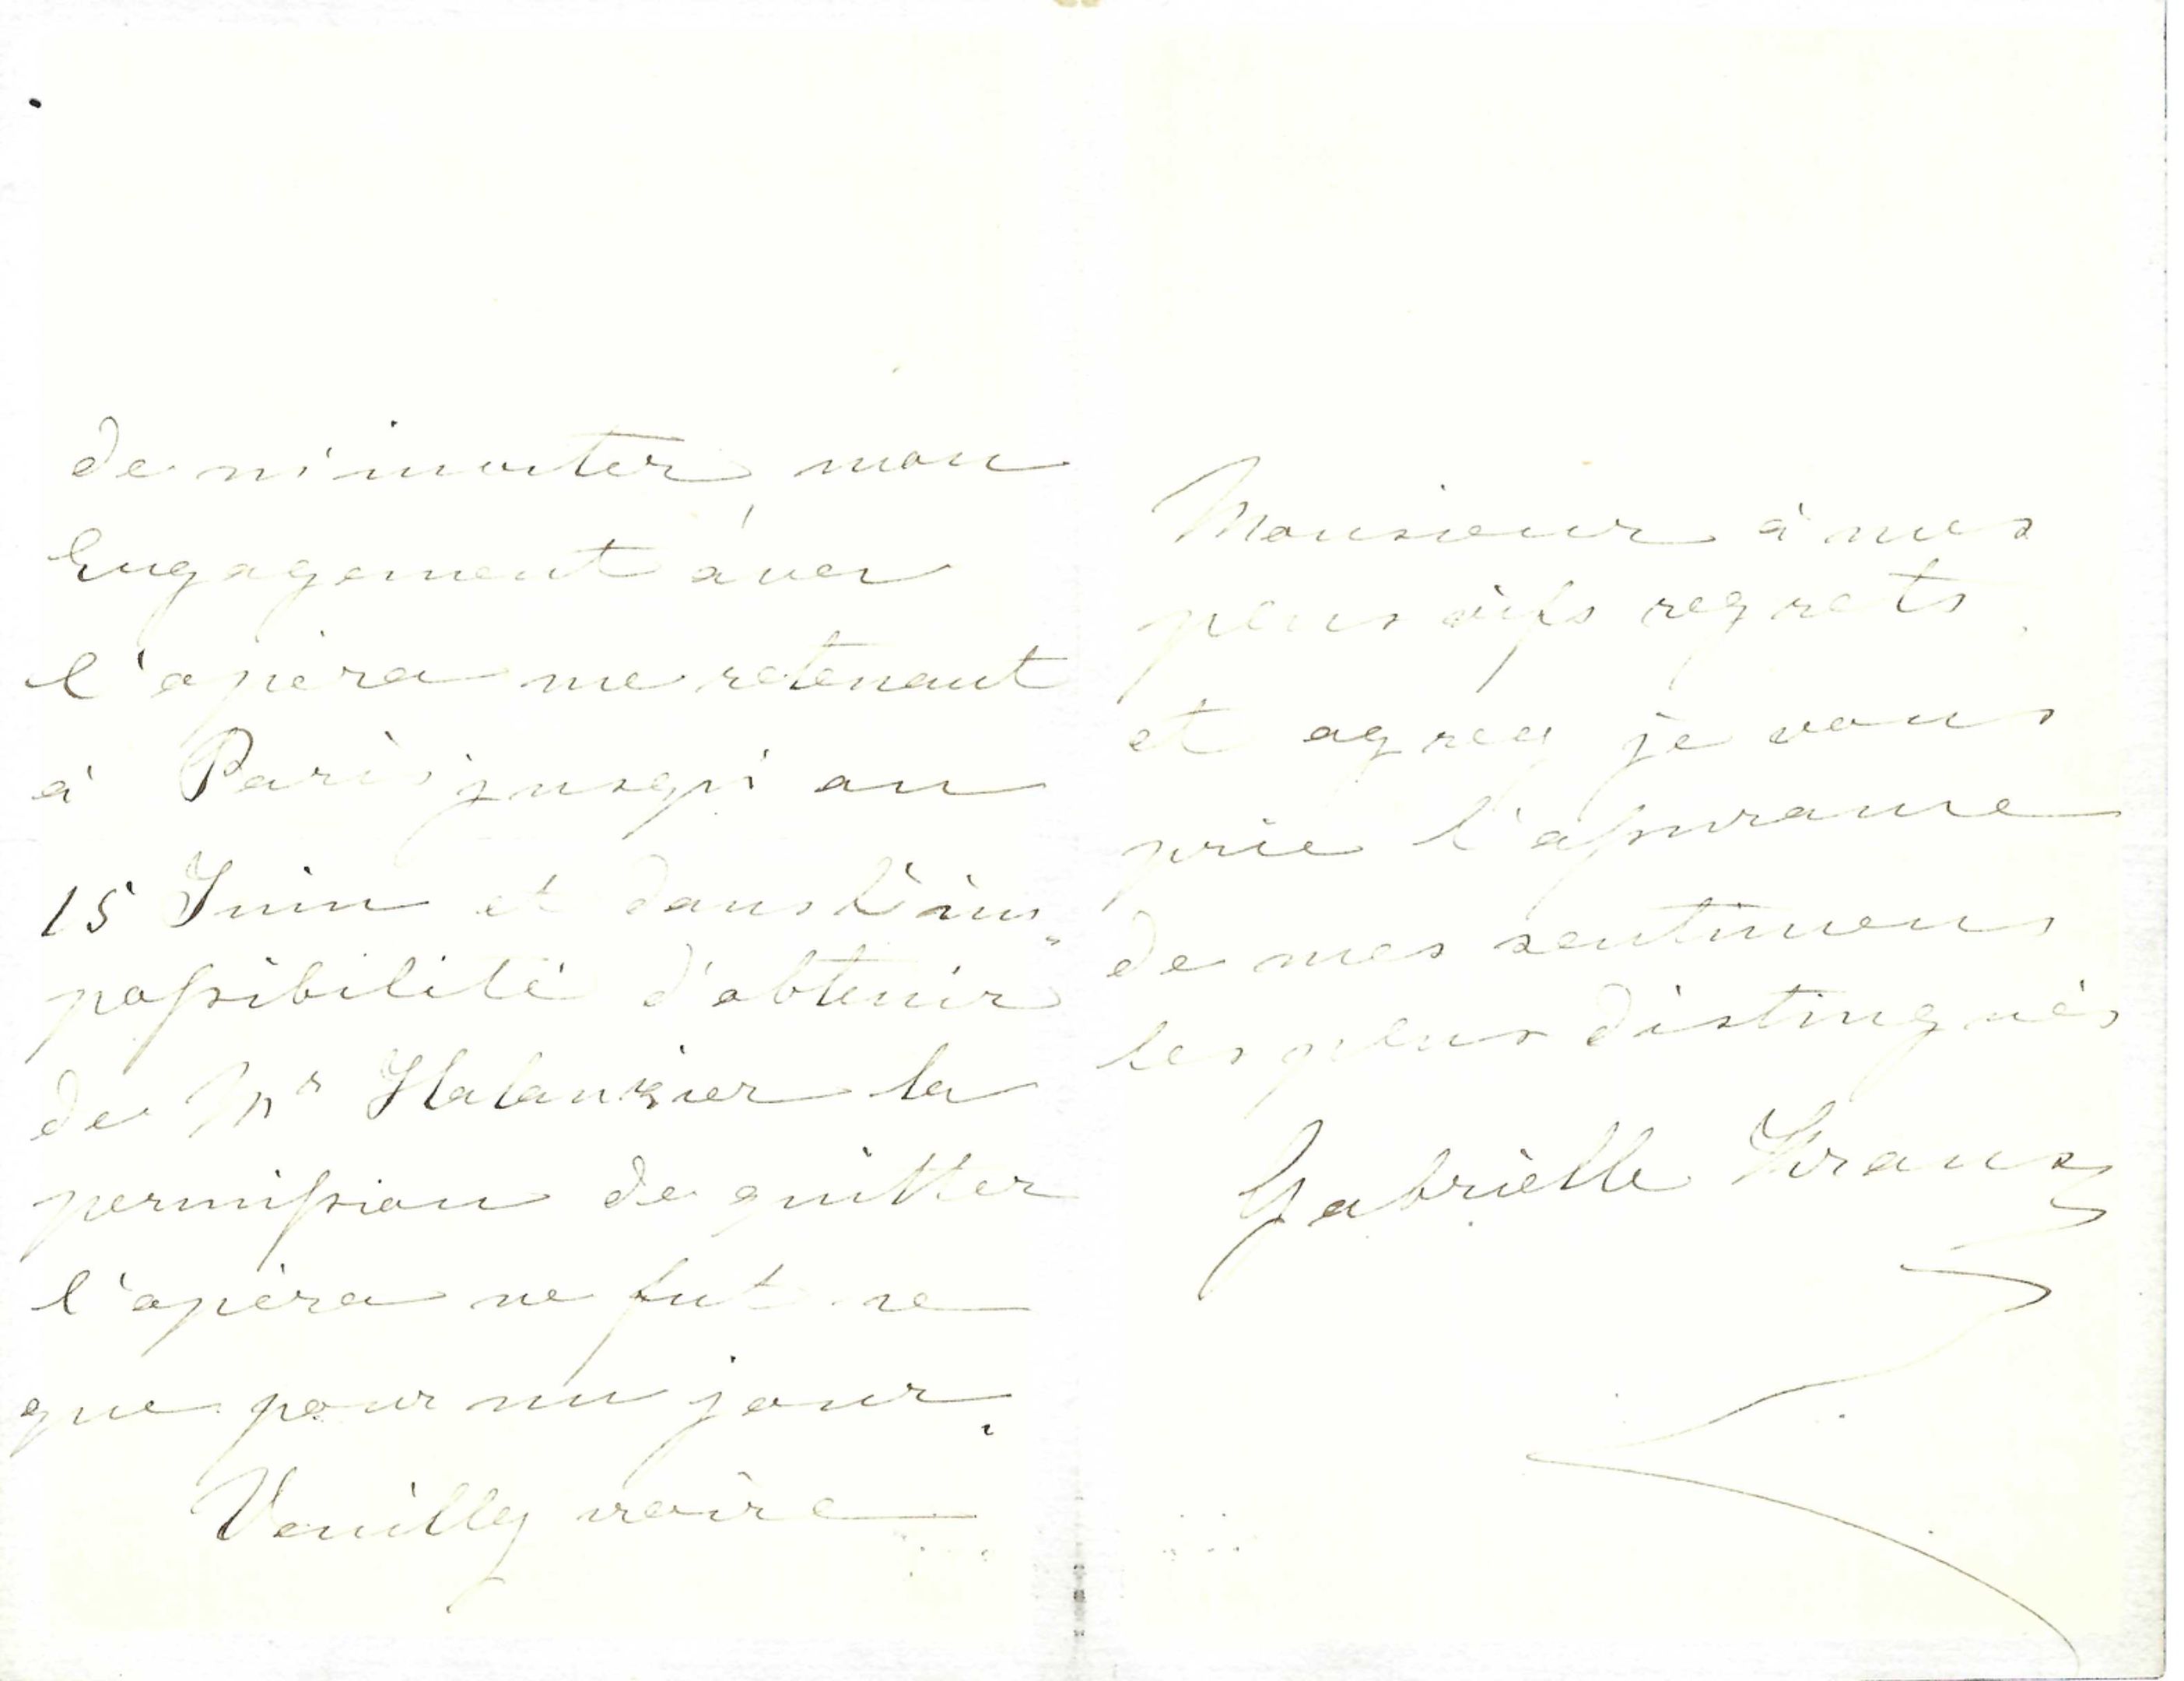 de m'inviter, mon
Engagement avec
l'opéra me retenant
à Paris jusqu'au
15 Juin et dans l'im-
possibilité d'obtenir
de Mr Halanzier la
permission de quitter
l'opéra ne fut ce
que pour un jour.
Veuillez croire
Monsieur à mes
plus vifs regrets,
et agreez je vous
prie l'assurance
de mes sentimens
les plus distingués
Gabrielle Krauss